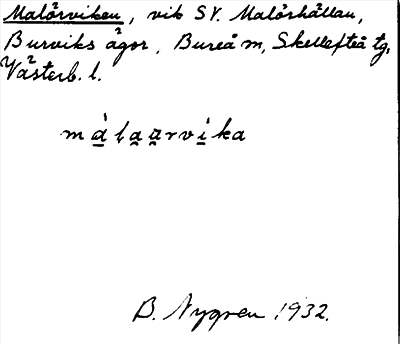 Malörviken, vik SV. Malörhällan,
Burviks ägor, Bureå m, Skellefteå tg,
Västerb. l.
mà̱la̱a̱rvi̱̍ka
B. Nygren 1932.